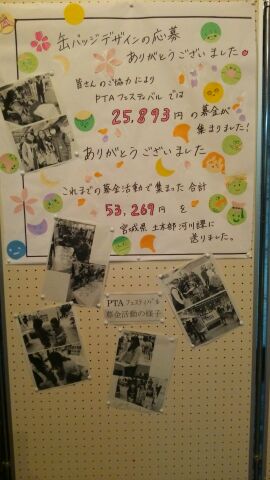 缶バッジデザインの応募
ありがとうございました。
皆さんのご協力により
PTAフェスティバルでは
25,893円の募金が
集まりました!
ありがとうございました
これまでの募金活動で集まった合計
53,269円を
宮城県土木部河川課に
送りました。
PTAフェスティバル
募金活動の様子